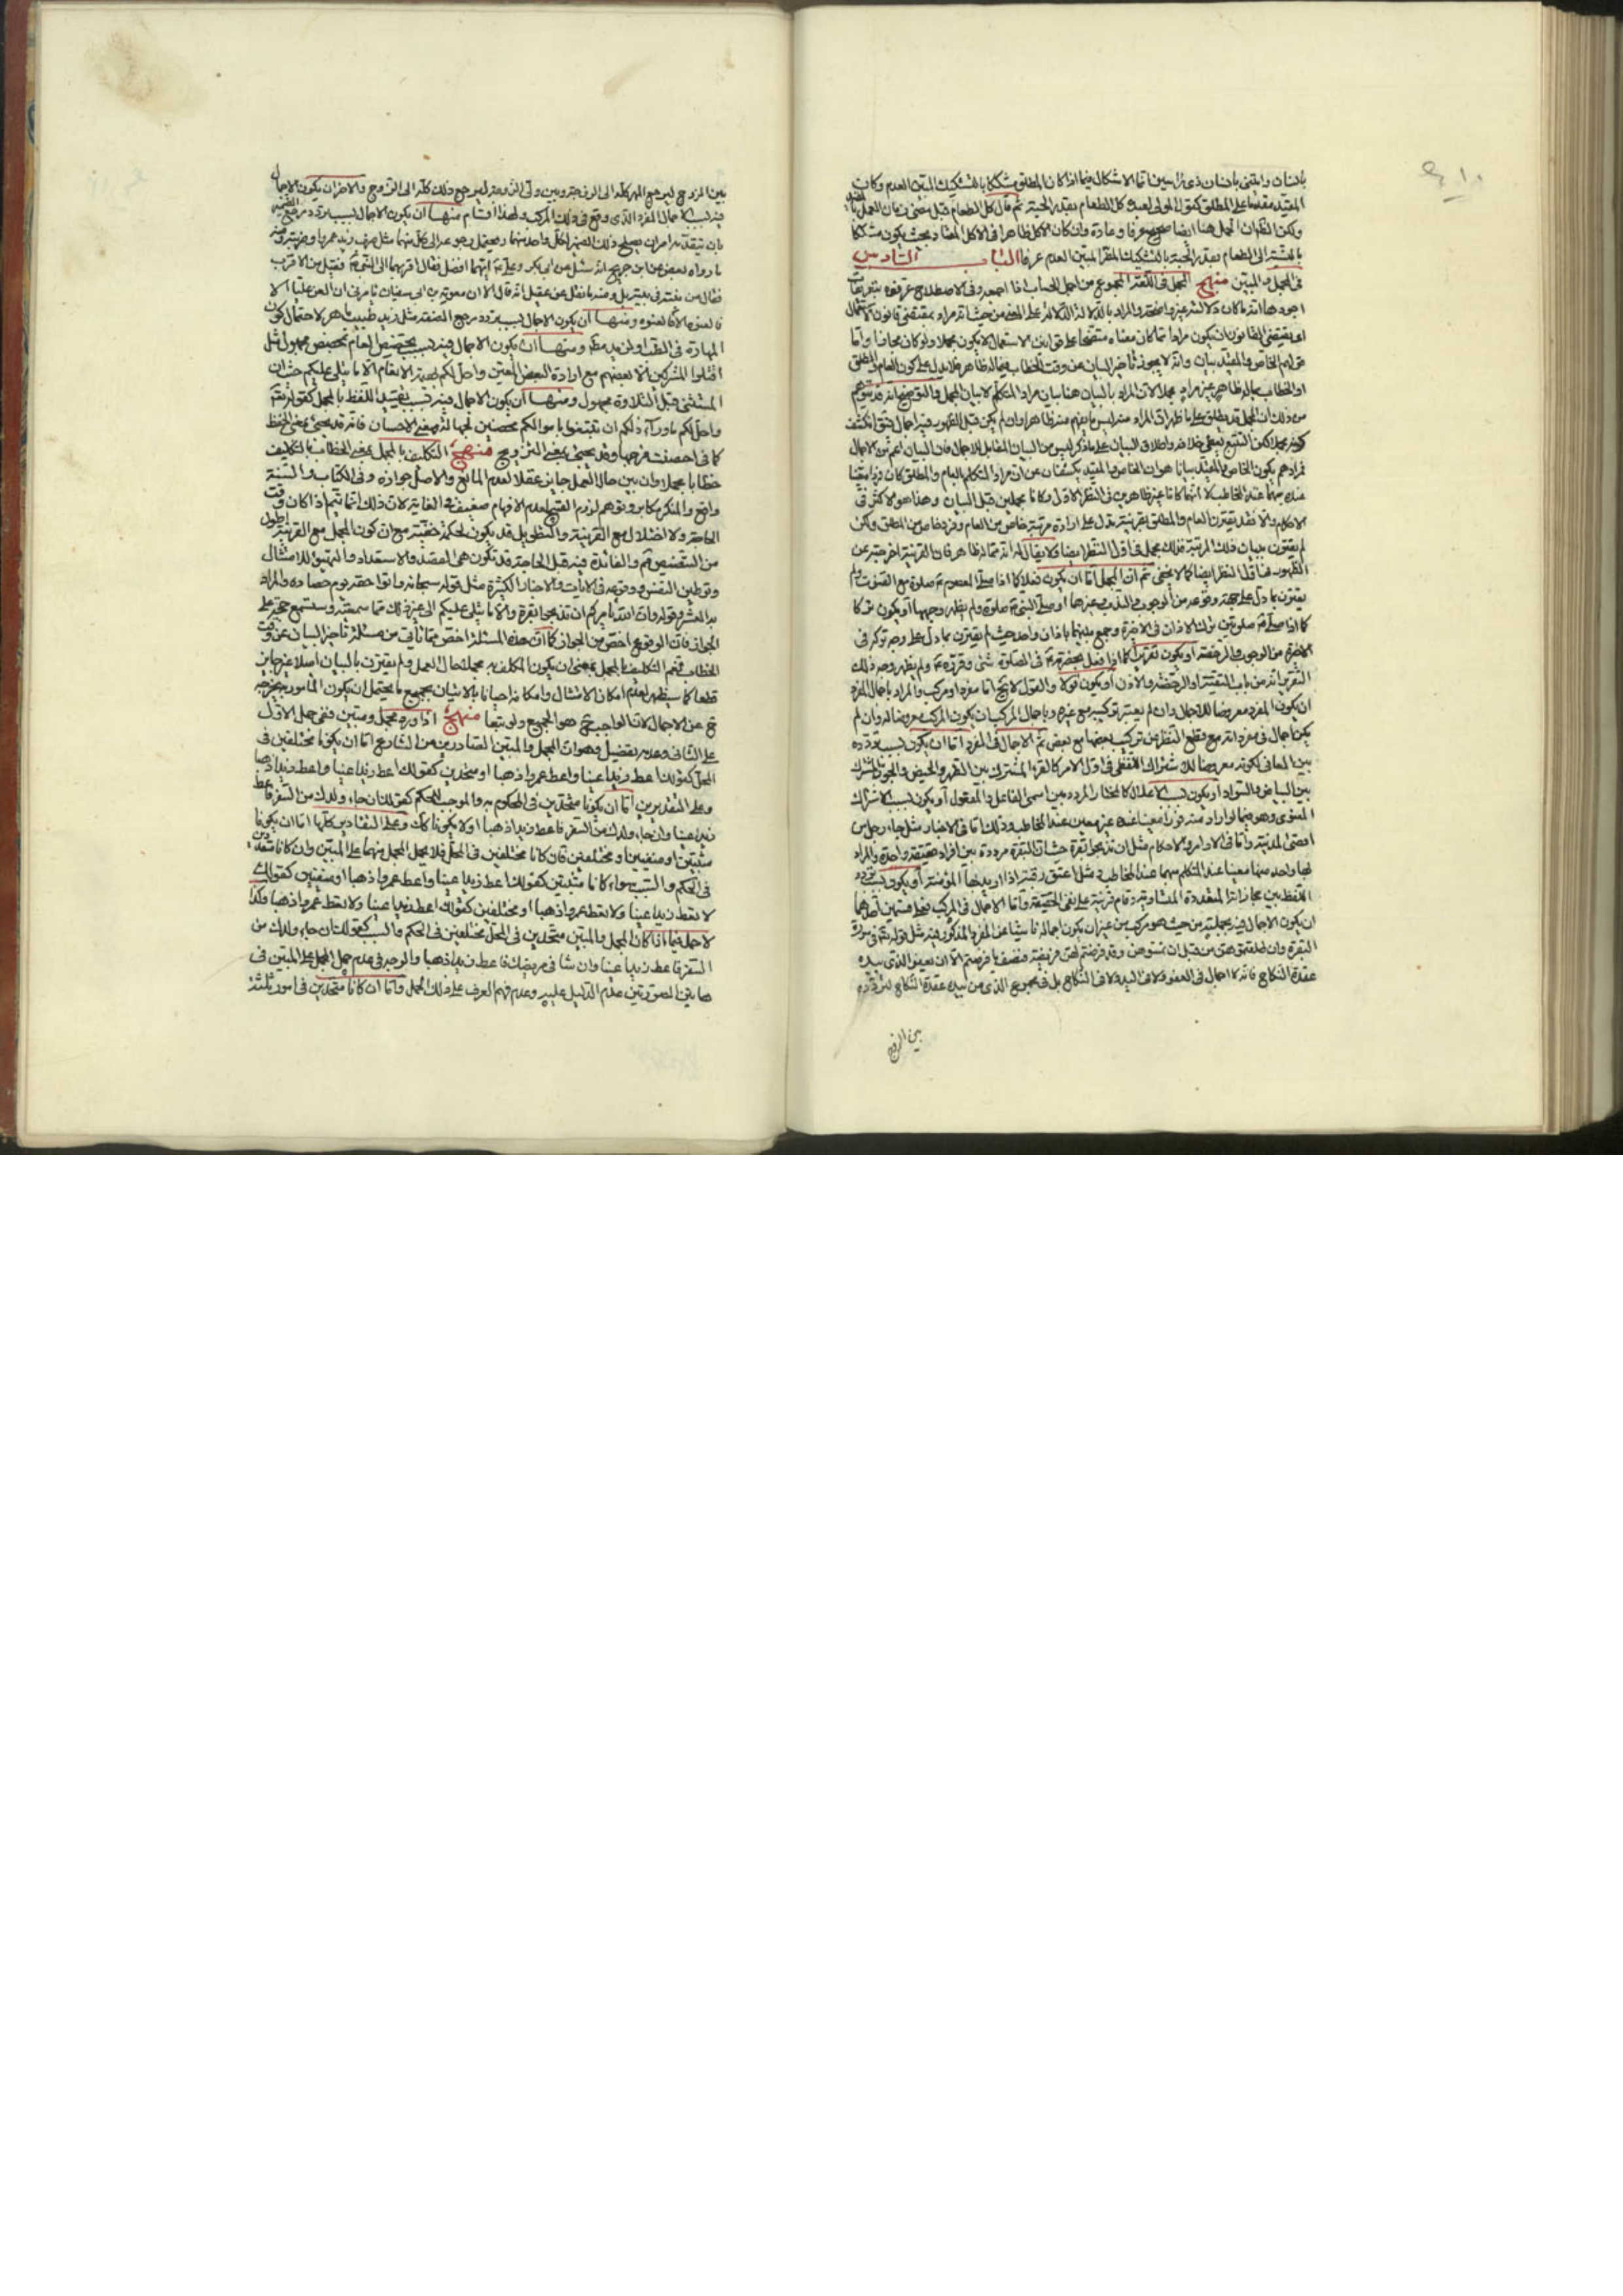 بانسان والمثنى بانسان ذى راسين اما الاشكال فيما اذا كان المطلق مشككا بالتشكيك المبين العدم وكان
المقيد مقدما على المطلق كقول المولى لعبده كل الطعام بقدر الحبة ثم قال كل الطعام قبل مضى زمان العمل
ولكن الظ ان الحمل هنا ايضا صحيح عرفا وعادة وان كان الاكل ظاهرا فى الاكل المعتاد بحيث يكون مشككا
بالنسبة الى الطعام بقدر الحبة بالتشكيك المبين العدم عرفا الباب السادس
فى المجمل والمبين منهج المجمل فى اللغة المجموع من اجمل الحساب اذا جمعه وفى الاصطلاح عرفوه بتعريفات
اجودها انه ما كان دلالته غير واضحة والمراد بالدلالة الدلالة على المعنى من حيث انه مراد بمقتضى قانون الاستعمال
اى يقتضى القانون ان يكون مرادا فما كان معناه متضحا على قوانين الاستعمال لا يكون مجملا ولو كان مجازا واما
قولهم الخاص والمقيد بيان وانه لا يجوز تأخير البيان عن وقت الخطاب فيما له ظاهر فلا يدل على كون العام والمطلق
او الخطاب بما له ظاهر غير مراد مجملا لان المراد بالبيان هنا بيان مراد المتكلم لا بيان المجمل والتوضيح انه قد يتوهم
من ذلك ان المجمل قد يطلق على ما ظهر ان المراد منه ليس ما يفهم منه ظاهرا وان لم يكن قبل الظهور فيه اجمال
كونه مجملا لكن التتبع يعطى خلافه واطلاق البيان على ما ذكر ليس من البيان المقابل للاجمال فان البيان اعم من الاجمال
فمرادهم بكون الخاص والمقيد بيانا هو ان الخاص والمقيد يكشفان عن ان مراد المتكلم بالعام والمطلق كان فردا معينا
عنده مبهما عند المخاطب لا انهما كانا غير ظاهرين فى النظر الاول وكانا مجملين قبل البيان وهذا هو الاكثر فى
الاحكام والا فقد يقترن العام والمطلق بقرينة تدل على ارادة مرتبة خاص من العام وفرد خاص من المطلق ولكن
لم يقترن ببيان تلك المرتبة فذلك مجمل فى اول النظر ايضا ولا يقال له انه مما له ظاهر فان القرينة اخرجته عن
الظهور فى اول النظر ايضا كما لا يخفى ثم ان المجمل اما ان يكون فعلا كما اذا صلى المعصوم ع صلوة مع القنوت ولم
يقترن بما دل على جهة وقوعه من الوجوب والندب وغيرها او صلى النبى ص صلوة ولم يظهر وجهها او يكون تركا
كما اذا صلى ع صلوتين ترك الاذان فى الاخيرة وجمع بينهما باذان واحد حيث لم يقترن بما دل على وجه تركه فى
الاخيرة من الوجوب والرخصة او يكون تقريرا كما اذا فعل بحضرته ع فى الصلوة شئ وقرره ع ولم يظهر وجه ذلك
التقرير انه من باب التقية او الرخصة والاذن او يكون قولا والقول لا يخ اما مفرد او مركب والمراد باجمال المفرد
ان يكون المفرد معروضا للاجمال وان لم يعتبر تركيبه مع غيره وباجمال المركب ان يكون المركب معروضا له وان لم
يكن اجمال فى مفرداته مع قطع النظر عن تركيب بعضها مع بعض ثم الاجمال فى المفرد اما ان يكون لسبب تردده
بين المعانى لكونه معروضا للاشتراك اللفظى فى اول الامر كالقرء المشترك بين الطهر والحيض والجون المشترك
بين البياض والسواد او يكون لسبب الاعلال كالمختار المردد بين اسمى الفاعل والمفعول او يكون لسبب الاشتراك
المعنوى وهو فيما لو اراد منه فردا معينا عنده غير معين عند المخاطب وذلك اما فى الاخبار مثل جاء رجل من
اقصى المدينة واما فى الاوامر والاحكام مثل ان تذبحوا بقرة حيث ان البقرة مرددة بين افراد حقيقة واحدة والمراد
بها واحد منها معينا عند المتكلم مبهما عند المخاطب ومثل اعتق رقبة اذا اريد بها المؤمنة او يكون لسبب تردد
اللفظ بين مجازاته المتعددة المتساوية وقام قرينة على نفى الحقيقة واما الاجمال فى المركب فعلى قسمين احدهما
ان يكون الاجمال فيه بجملته من حيث هو مركب من غير ان يكون اجماله ناشيا عن المفرد المذكور فيه مثل قوله تعالى فى سورة
البقرة وان طلقتموهن من قبل ان تمسوهن وقد فرضتم لهن فريضة فنصف ما فرضتم الا ان يعفو الذى بيده
عقدة النكاح فانه لا اجمال فى العفو ولا فى اليد ولا فى النكاح بل فى مجموع الذى من بيده عقدة النكاح لتردده
بين الزوج
بين الزوج ليرجع المهر كله الى الزوجة وبين ولى الزوجة ليرجع ذلك كله الى الزوج والاخر ان يكون الاجمال
فيه لسبب اجمال المفرد الذى وقع فى ذلك المركب ولهذا اقسام منها ان يكون الاجمال لسبب تردد مرجع الضمير
بان يتقدمه امران يصلح ذلك الضمير لكل واحد منهما ويحتمل رجوعه الى كل منهما مثل ضرب زيد عمروا وضربته ومنه
ما رواه بعض عن ابن جريح انه سئل عن ابى بكر وعلى ع ايهما افضل فقال اقربهما الى النبى ص فقيل من الاقرب
فقال من بنته فى بيته بل ومنه ما نقل عن عقيل انه قال الا ان معوية بن ابى سفيان يامرنى ان العن عليا الا
فالعنوه الا فالعنوه ومنها ان يكون الاجمال لسبب تردد مرجع الصفة مثل زيد طبيب ماهر لاحتمال كون
المهارة فى الطب او لزيد مطلقا ومنها ان يكون الاجمال فيه لسبب تخصيص العام بمخصص مجهول مثل
اقتلوا المشركين الا بعضهم مع ارادة البعض المعين واحل لكم بهيمة الانعام الا ما يتلى عليكم حيث ان
المستثنى قبل التلاوة مجهول ومنها ان يكون الاجمال فيه لسبب تقييد اللفظ بالمجمل كقوله تعالى
واحل لكم ما وراء ذلكم ان تبتغوا باموالكم محصنين لجهالة معنى الاحسان فانه قد يجئ بمعنى الحفظ
كما فى احصنت فرجها وقد يجئ بمعنى التزويج منهج التكليف بالمجمل بمعنى الخطاب بالتكليف
خطابا مجملا وان بين حال العمل جايز عقلا لعدم المانع والاصل جوازه وفى الكتاب والسنة
واقع والمنكر مكابر وتوهم لزوم القبح لعدم الافهام ضعيف فى الغاية لان ذلك انما يتم اذا كان وقت
الحاجة ولا اخلال مع القرينة والتطويل قد يكون لحكمة خفية مع ان كون المجمل مع القرينة اطول
من التنصيص مم والفائدة فيه قبل الحاجة قد تكون هى القصد والاستعداد والتهيؤ للامتثال
وتوطين النفس ووقوعه فى الايات والاخبار الكثيرة مثل قوله سبحانه واتوا حقه يوم حصاده والمراد
به العشر وقوله وان الله يامركم ان تذبحوا بقرة والا ما يتلى عليكم الى غير ذلك مما سمعته وستسمع حجة على
الجواز فان الوقوع اخص من الجواز كما ان هذه المسئلة اخص مما يأتى من مسئلة تأخير البيان عن وقت
الخطاب نعم التكليف بالمجمل بمعنى ان يكون المكلف به مجملا حال العمل ولم يقترن بالبيان اصلا غير جايز
قطعا كما سيظهر لعدم امكان الامتثال وامكانه احيانا بالاتيان بجميع ما يحتمل ان يكون المأمور به يخرجه
ح عن الاجمال لان الواجب ح هو الجميع ولو تبعا منهج اذا ورد مجمل ومبين ففى حمل الاول
على الثانى وعدمه تفصيل وهو ان المجمل والمبين الصادرين من الشارع اما ان يكونا مختلفين فى
المحل كقولك اعط زيدا عينا واعط عمروا ذهبا او متحدين كقولك اعط زيدا عينا واعط زيدا ذهبا
وعلى التقديرين اما ان يكونا متحدين فى المحكوم به والموجب للحكم كقولك ان جاء ولدك من السفر فاعط
زيدا عينا وان جاء ولدك من السفر فاعط زيدا ذهبا او لا يكونا كك وعلى التقادير كلها اما ان يكونا
مثبتين او منفيين او مختلفين فان كانا مختلفين فى المحل فلا يحمل المجمل منهما على المبين وان كانا متحدين
فى الحكم والسبب سواء كانا مثبتين كقولك اعط زيدا عينا واعط عمروا ذهبا او منفيين كقولك
لا تعط زيدا عينا ولا تعط عمروا ذهبا او مختلفين كقولك اعط زيدا عينا ولا تعط عمروا ذهبا وكذا
لا حمل فيما اذا كان المجمل والمبين متحدين فى المحل مختلفين فى الحكم والسبب كقولك ان جاء ولدك من
السفر فاعط زيدا عينا وان شفا مريضك فاعط زيدا ذهبا والوجه فى عدم حمل المجمل على المبين فى
هاتين الصورتين عدم الدليل عليه وعدم فهم العرف على ذلك الحمل واما ان كانا متحدين فى امور ثلثة